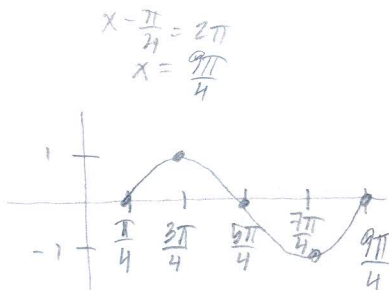 x - π/4 = 2π
x = 9π/4
1
-1
π/4 3π/4 5π/4 7π/4 9π/4